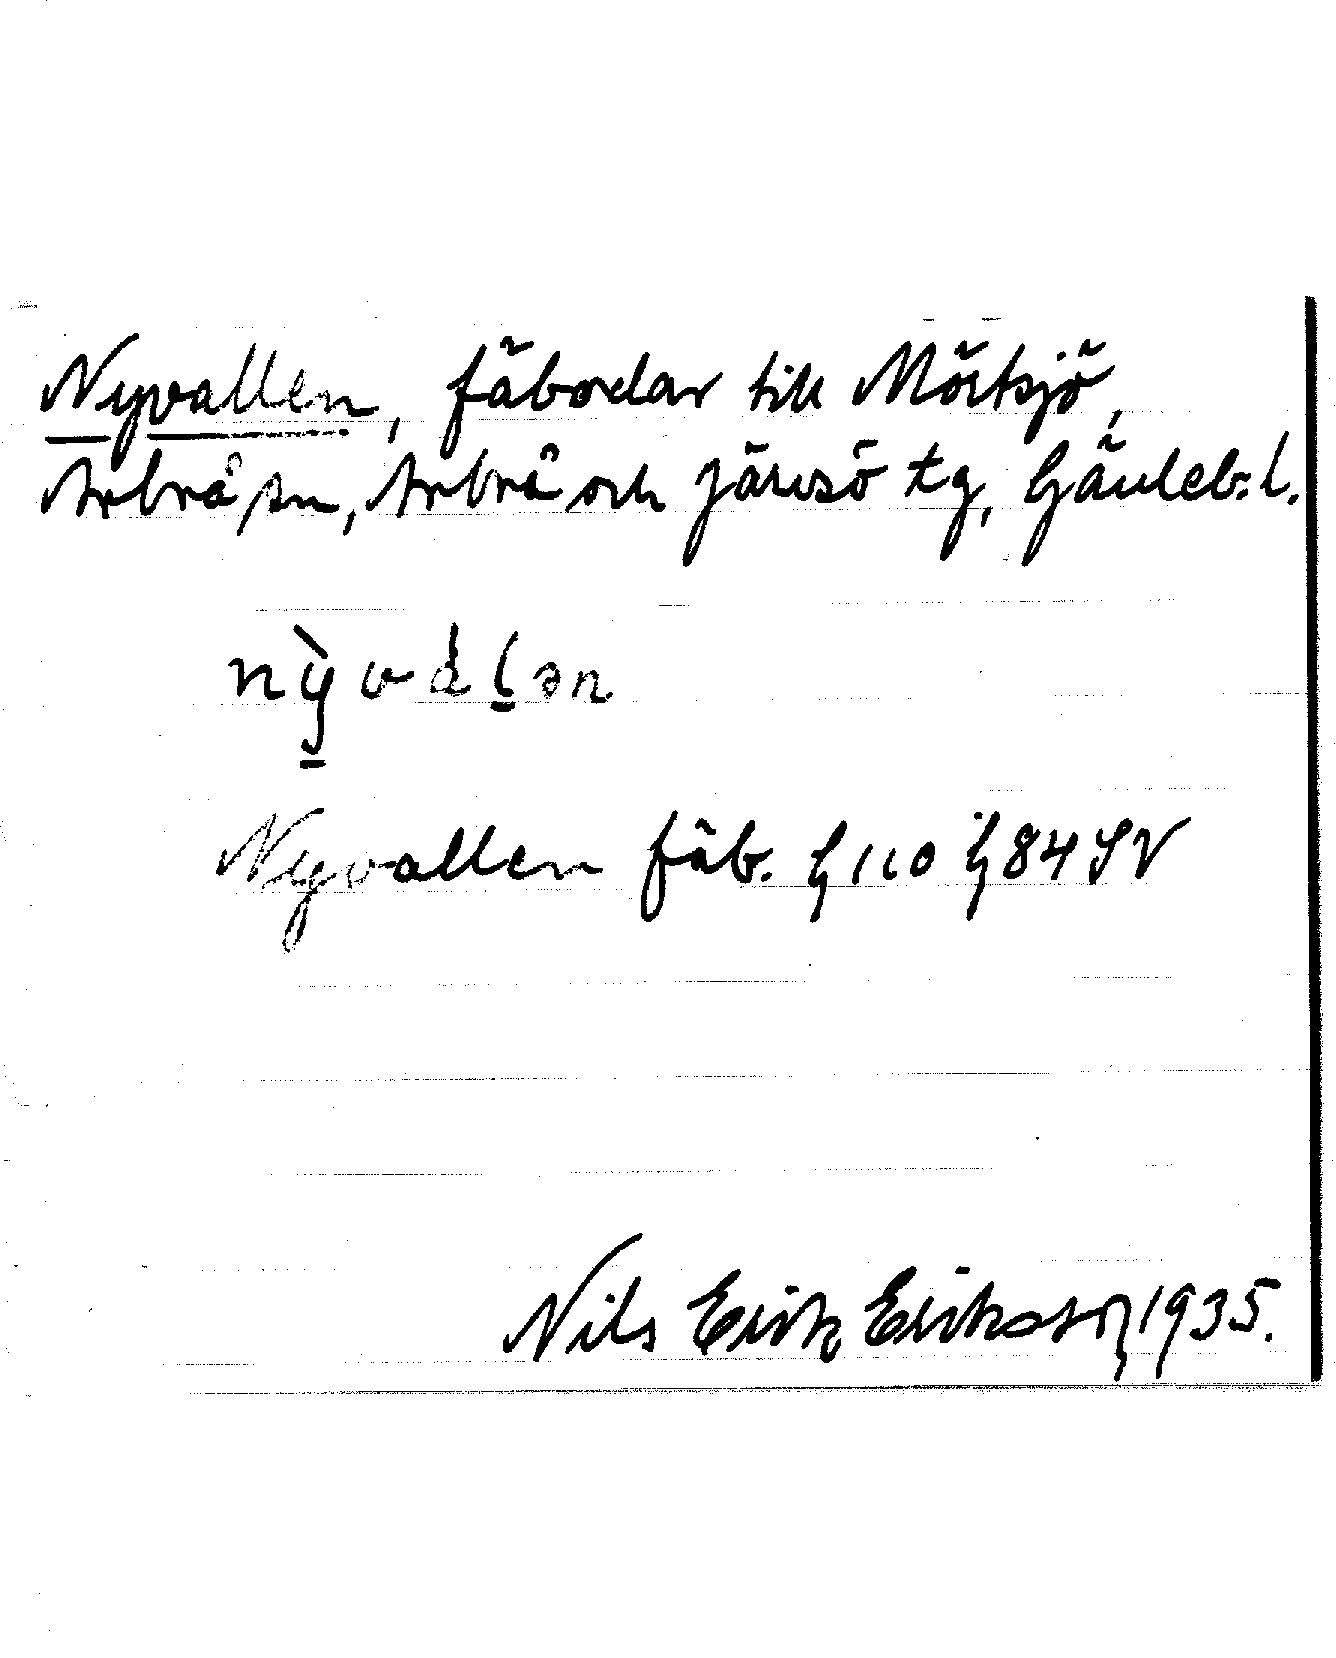 Nyvallen, fäbodar till Mörtsjö,
Arbrå sn, Arbrå och Järvsö tg, Gävleb. l.
nỳvȧlən
Nyvallen fäb. G 110 G 84 SV
Nils Erik Erikson 1935.